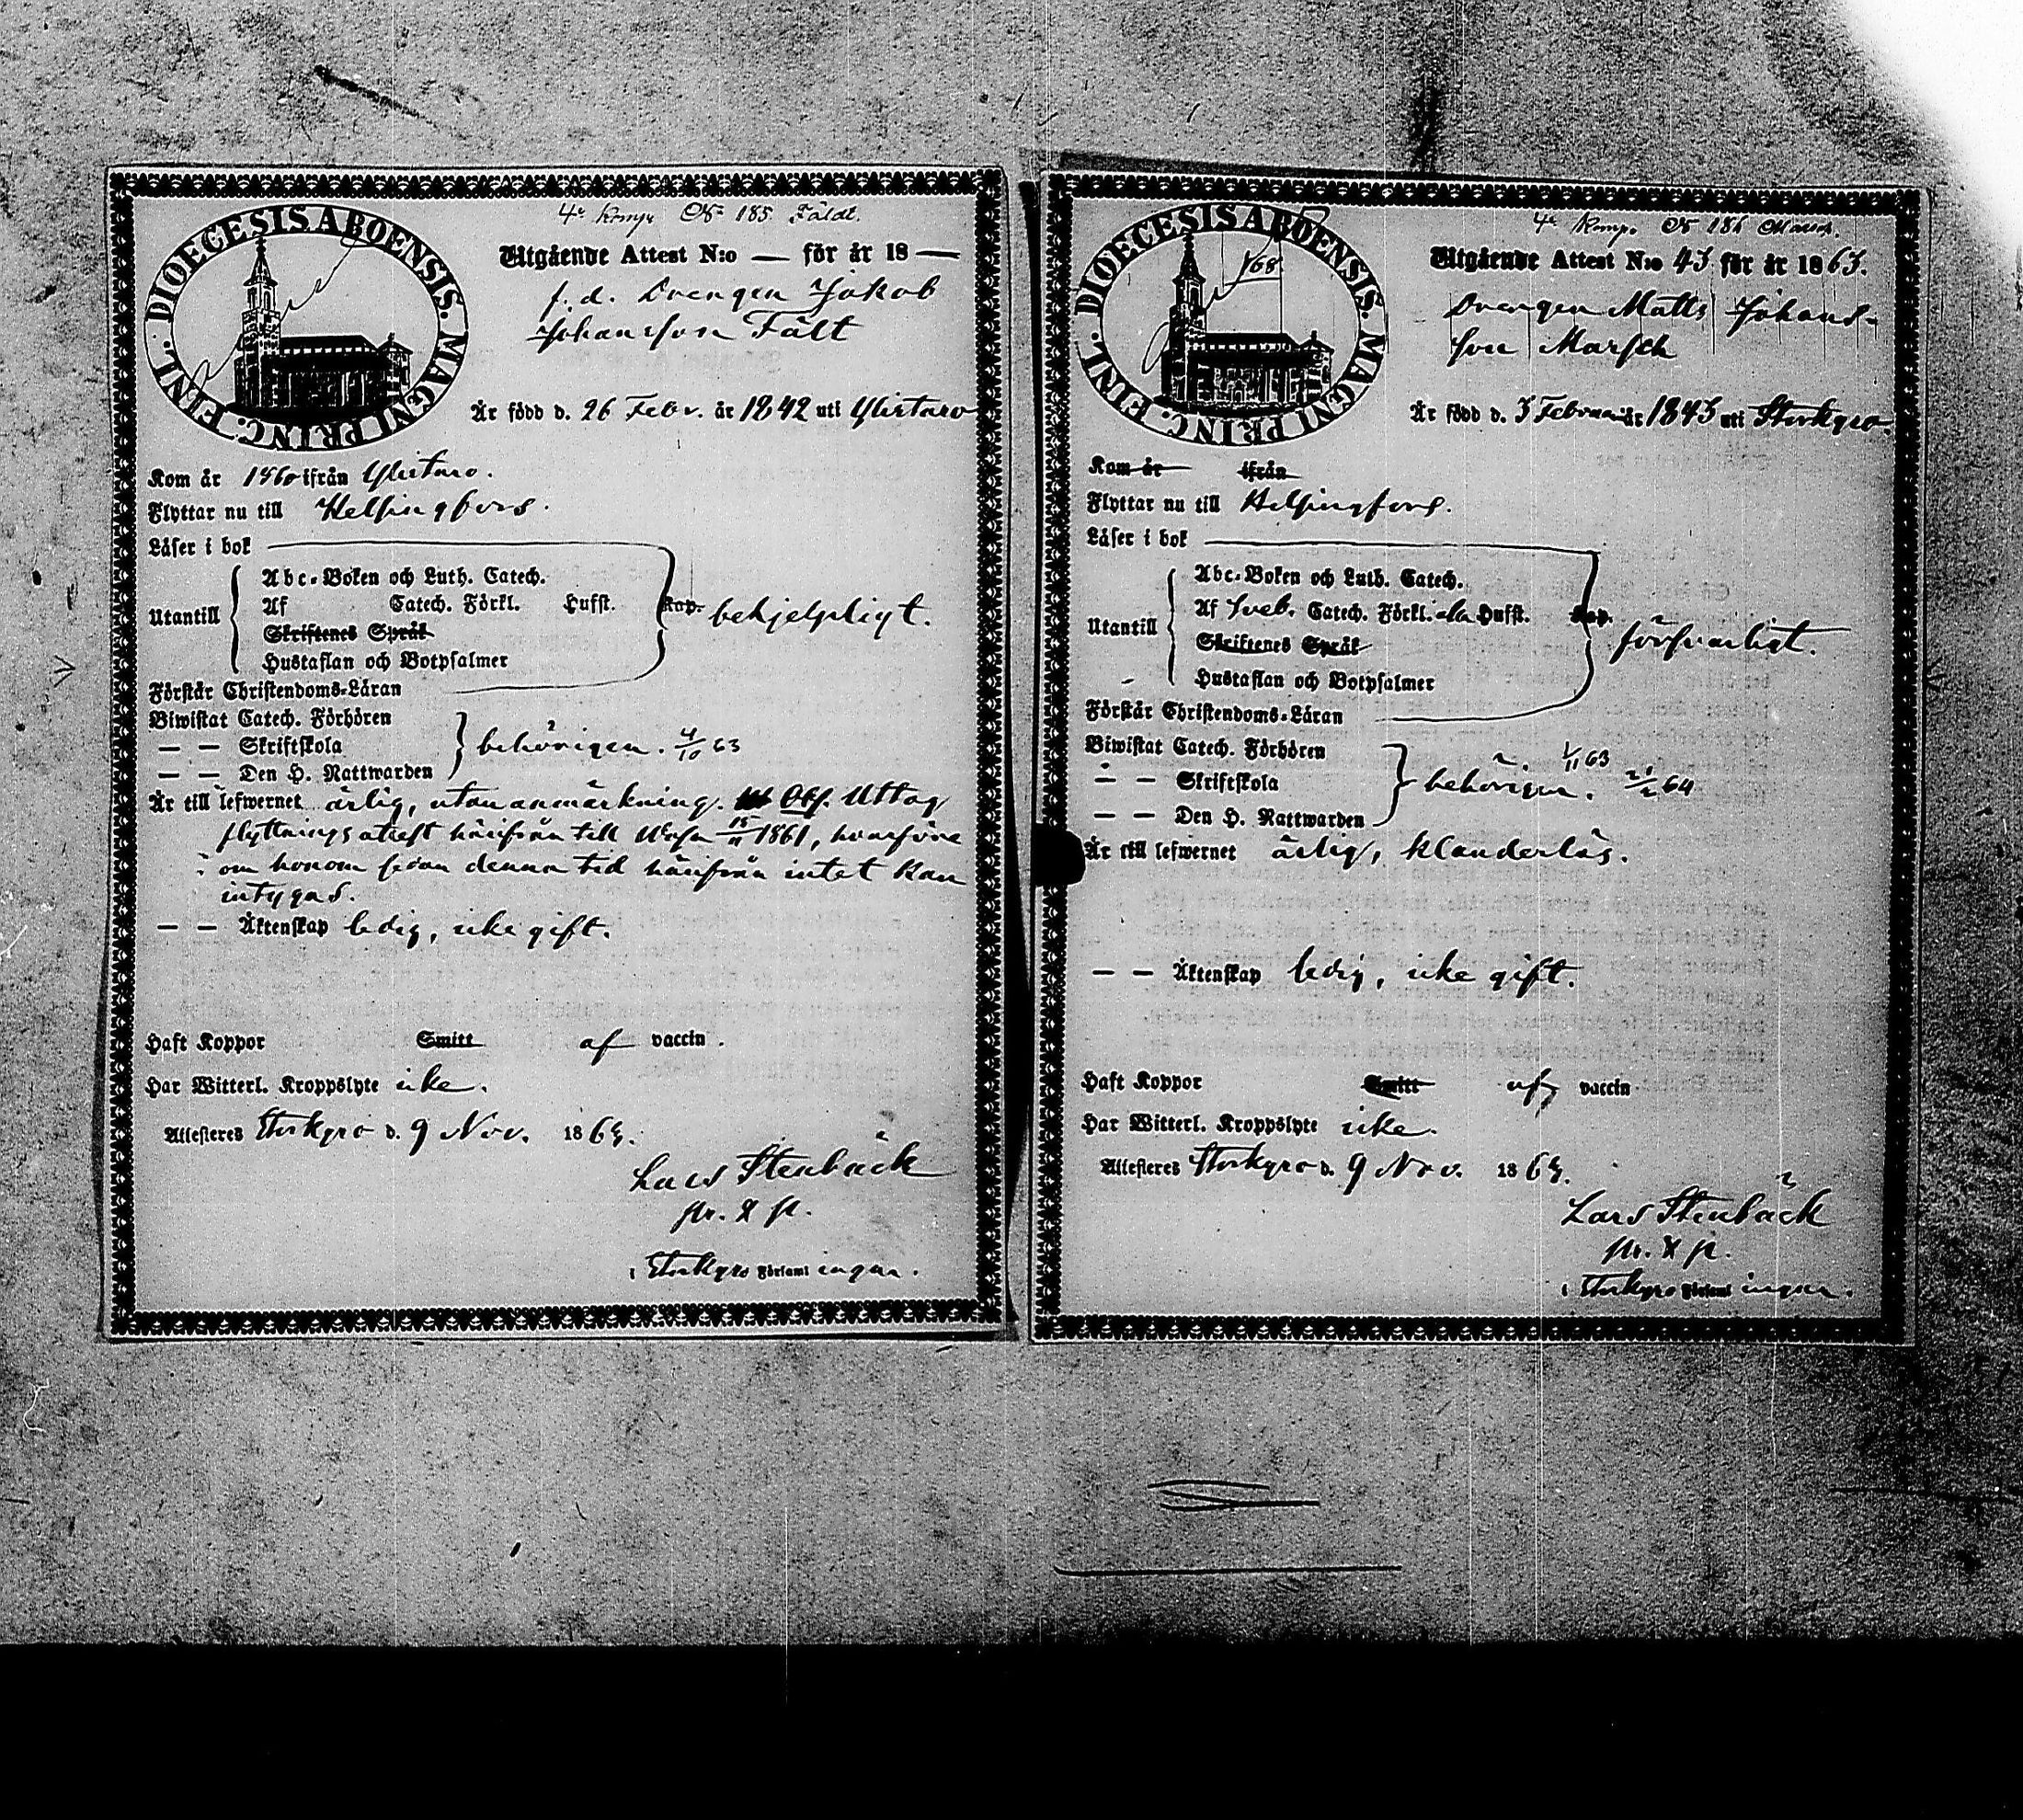 4e Komp. No 185 Fäldt.
DIOECESIS ABOENSIS. MAGNI PRINC. FINL.
Utgående Attest N:o — för år 18 —
f. d. Drengen Jakob
Johansson Fält
Är född d. 26 Febr. år 1842 uti Ylistaro
Kom år 1860 ifrån Ylistaro.
Flyttar nu till Helsingfors.
Läser i bok
Utantill
Abc-Boken och Luth. Catech.
Af Catech. Förkl. Hufst. Kap. behjelpligt.
Skriftenes Språk
Hustaflan och Botpsalmer
Förstår Christendoms-Läran
Biwistat Catech. Förhören
— — Skriftskola behörigen. 4/10 63
— — Den H. Nattwarden
Är till lefwernet ärlig, utan anmärkning. Obs. Uttog
flyttningsattest härifrån till Wasa 15/11 1861, hvarföre
om honom sedan denna tid härifrån intet kan
intygas.
— — Äktenskap ledig, icke gift.
Haft Koppor Smitt af vaccin.
Har Witterl. Kroppslyte icke.
Attesteres Storkyro d. 9 Nov. 1864.
Lars Stenbäck
pr. & p.
i Storkyro Församlingar.
4e Komp. No 186 Marsch.
DIOECESIS ABOENSIS. MAGNI PRINC. FINL.
168
Utgående Attest N:o 43 för år 1863.
Drengen Matts Johans-
son Marsch
Är född d. 3 Februari år 1843 uti Storkyro.
Kom år ifrån
Flyttar nu till Helsingfors.
Läser i bok
Utantill
Abc-Boken och Luth. Catech.
Af Sveb. Catech. Förkl. alla Hufst. Kap.
försvarligt.
Skriftenes Språk
Hustaflan och Botpsalmer
Förstår Christendoms-Läran
Biwistat Catech. Förhören 1/11 63
— — Skriftskola behörigen. 21/2 64
— — Den H. Nattwarden
Är till lefwernet ärlig, klanderlös.
— — Äktenskap ledig, icke gift.
Haft Koppor Smitt af vaccin
Har Witterl. Kroppslyte icke.
Attesteres Storkyro d. 9 Nov. 1864.
Lars Stenbäck
pr. & p.
i Storkyro Församlingar.